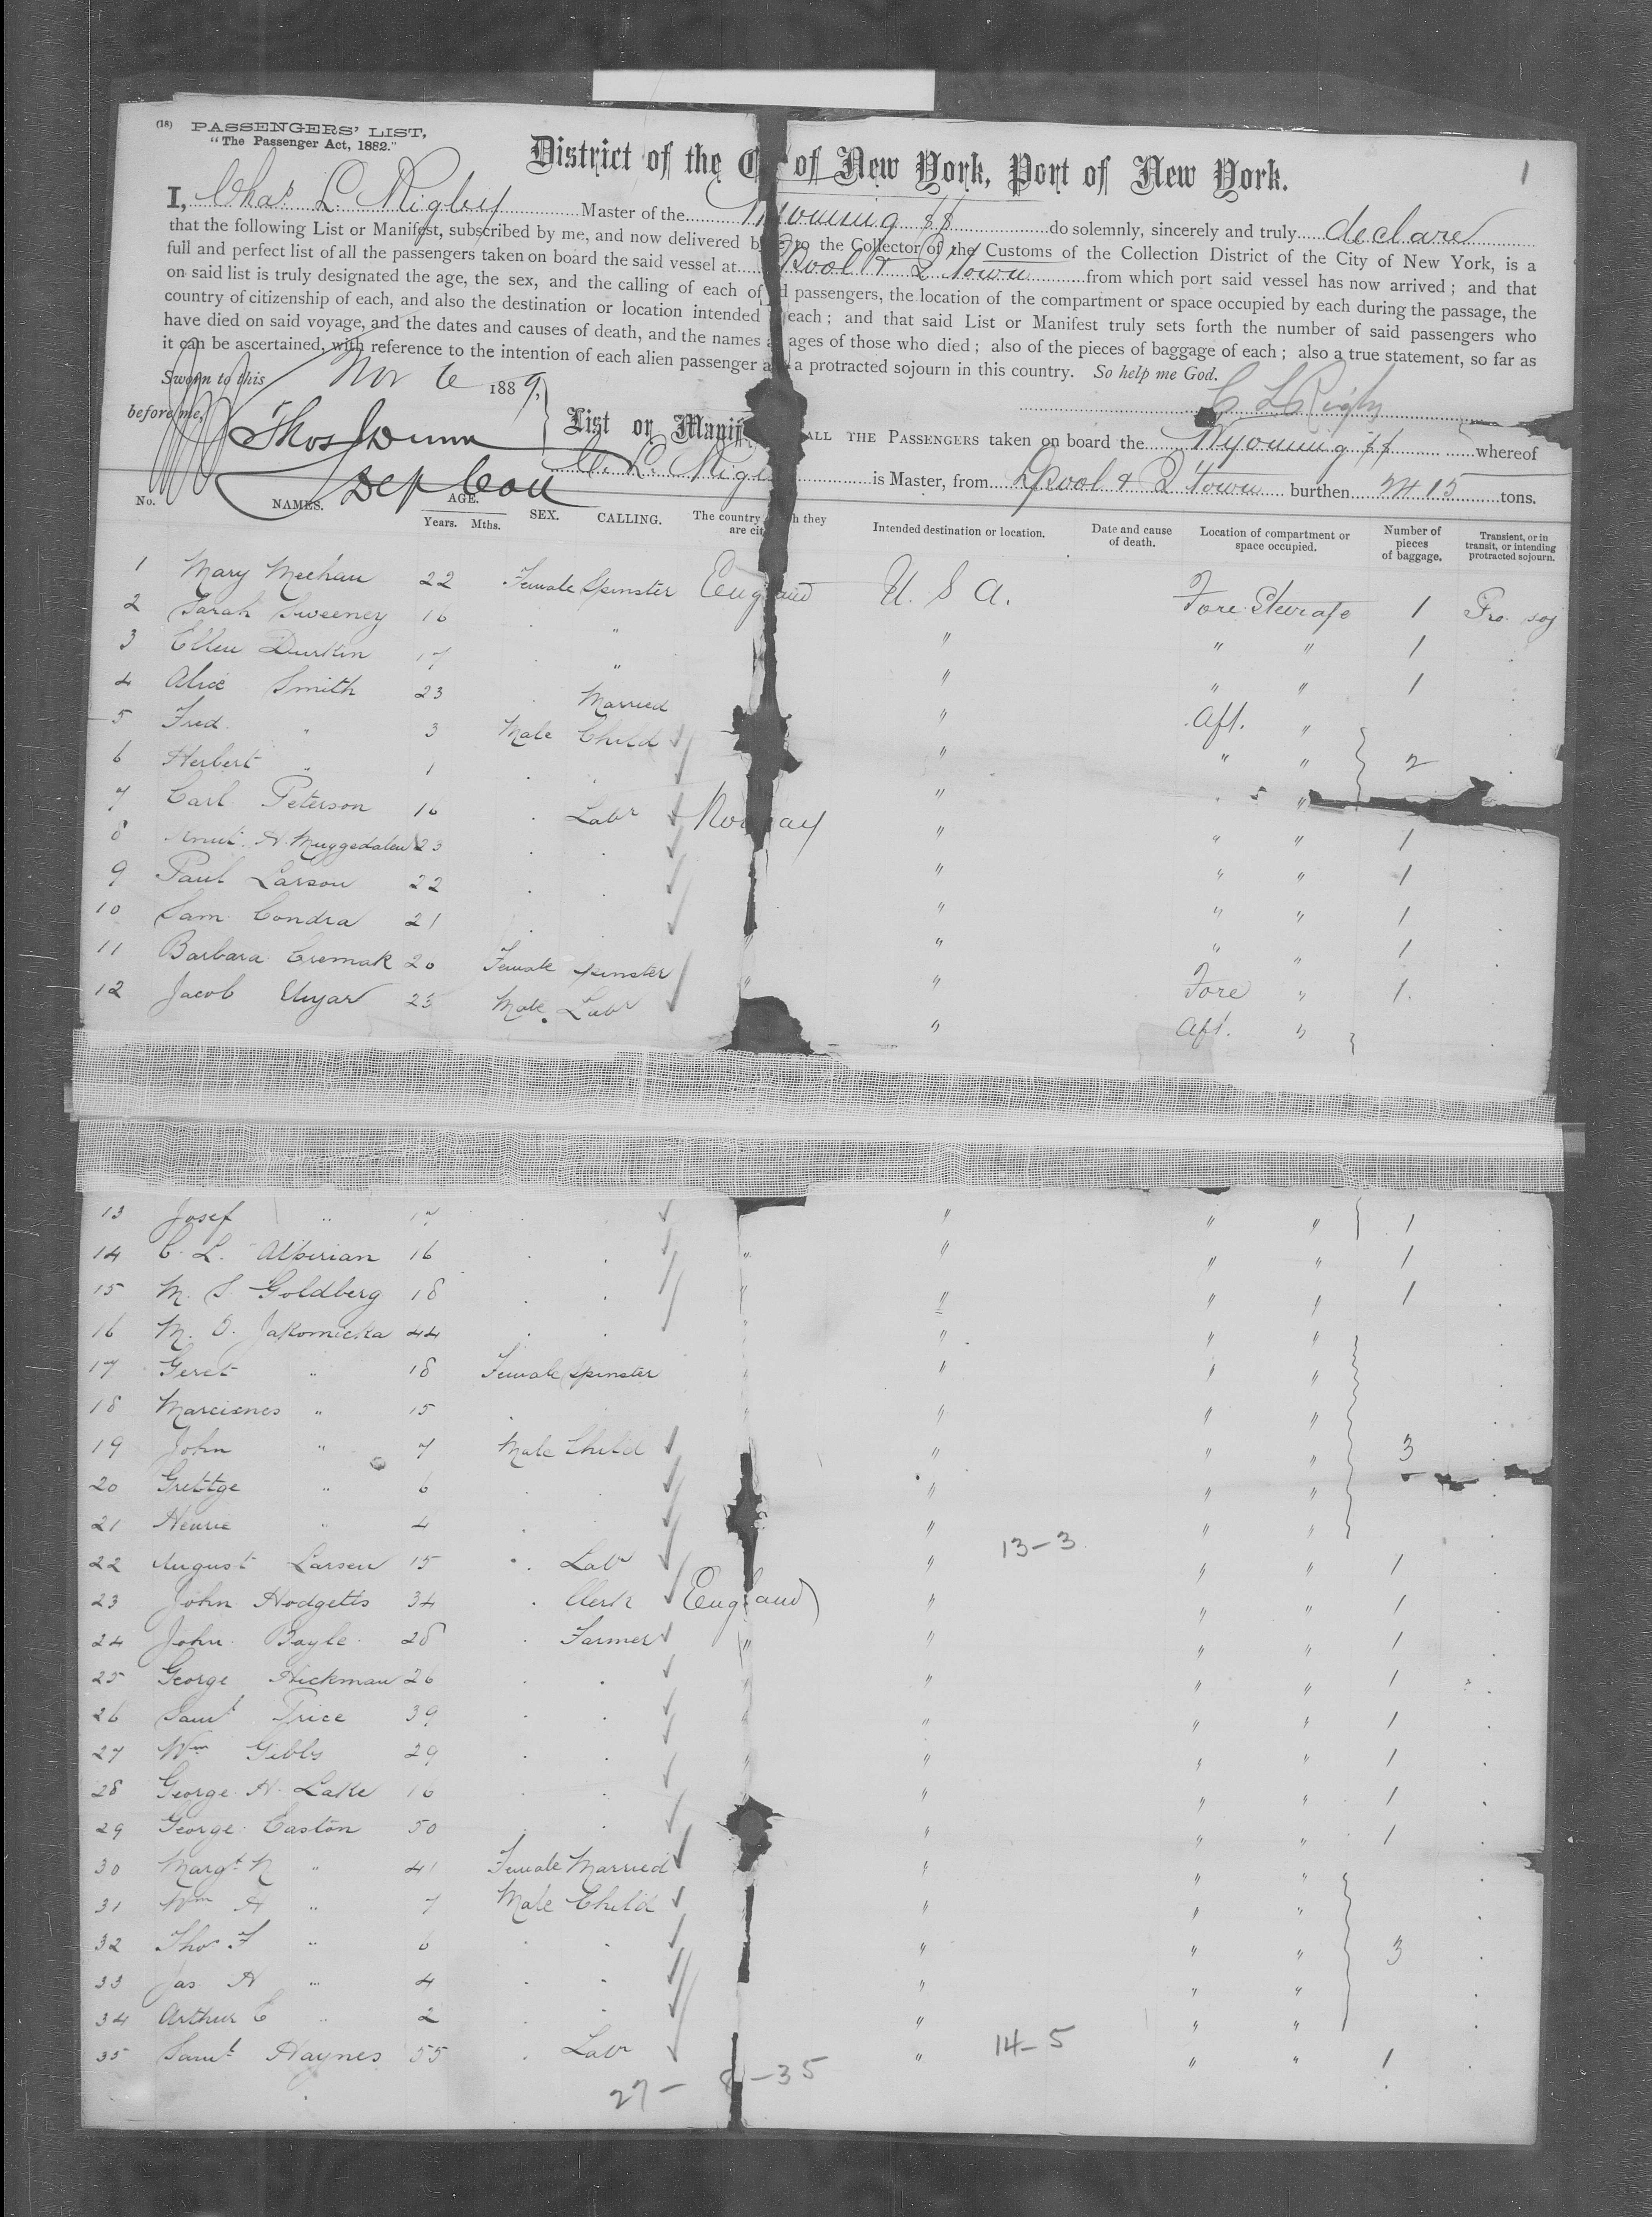 (18) PASSENGERS' LIST,
"The Passenger Act, 1882."
District of the C of New York, Port of New York.
1
I, Chas L. Rigby Master of the Wyoming SS do solemnly, sincerely and truly declare
that the following List or Manifest, subscribed by me, and now delivered b to the Collector of the Customs of the Collection District of the City of New York, is a
full and perfect list of all the passengers taken on board the said vessel at Lpool & Q Town from which port said vessel has now arrived; and that
on said list is truly designated the age, the sex, and the calling of each of d passengers, the location of the compartment or space occupied by each during the passage, the
country of citizenship of each, and also the destination or location intended each; and that said List or Manifest truly sets forth the number of said passengers who
have died on said voyage, and the dates and causes of death, and the names a ages of those who died; also of the pieces of baggage of each; also a true statement, so far as
it can be ascertained, with reference to the intention of each alien passenger a a protracted sojourn in this country. So help me God.
Sworn to this Nov 6 1889,
C L Rigby
before me, Thos Dunn
Dep Coll
List or Manif ALL THE PASSENGERS taken on board the Wyoming SS whereof
C. L. Rig is Master, from Lpool & Q Town burthen 2415 tons.
No. NAMES. AGE. Years. Mths. SEX. CALLING. The country h they are cit Intended destination or location. Date and cause of death. Location of compartment or space occupied. Number of pieces of baggage. Transient, or in transit, or intending protracted sojourn.
1 Mary Meehan 22 Female Spinster England U. S A. Fore Steerage 1 Pro. soj
2 Sarah Sweeney 16 " " " " 1
3 Ellen Durkin 17 " " " " 1
4 Alice Smith 23 Married " Aft. "
5 Fred " 3 Male Child " " " 2
6 Herbert " 1 " "
7 Carl Peterson 16 Labr Norway " " " 1
8 Knut A. Muggedalen 23 " " " 1
9 Paul Larson 22 " " " 1
10 Sam Condra 21 " " " 1
11 Barbara Cremak 20 Female Spinster " " Fore " 1
12 Jacob Uhyar 23 Male Labr " Aft. "
13 Josef " 17 " " " 1
14 C. L. Alberian 16 " " " " 1
15 M. S. Goldberg 18 " " " " 1
16 M. S. Jakomicka 44 " " " "
17 Geret " 18 Female Spinster " " " "
18 Marcienes " 15 " " " "
19 John " 7 Male Child " " " 3
20 Grettge " 6 " " "
21 Henrie " 4 " " "
13-3
22 August Larsen 15 Labr " " " 1
23 John Hodgetts 34 Clerk England " " " 1
24 John Boyle 28 Farmer " " " " 1
25 George Hickman 26 " " " " 1
26 Saml Price 39 " " " " 1
27 Wm Gibbs 29 " " " " 1
28 George H. Lake 16 " " " 1
29 George Easton 50 " " " 1
30 Margt N " 41 Female Married " " "
31 Wm A " 7 Male Child " " "
32 Thos F " 6 " " " 3
33 Jas H " 4 " " "
34 Arthur E " 2 " " "
35 Saml Haynes 55 Labr " " " 1
14-5
27- 8-35